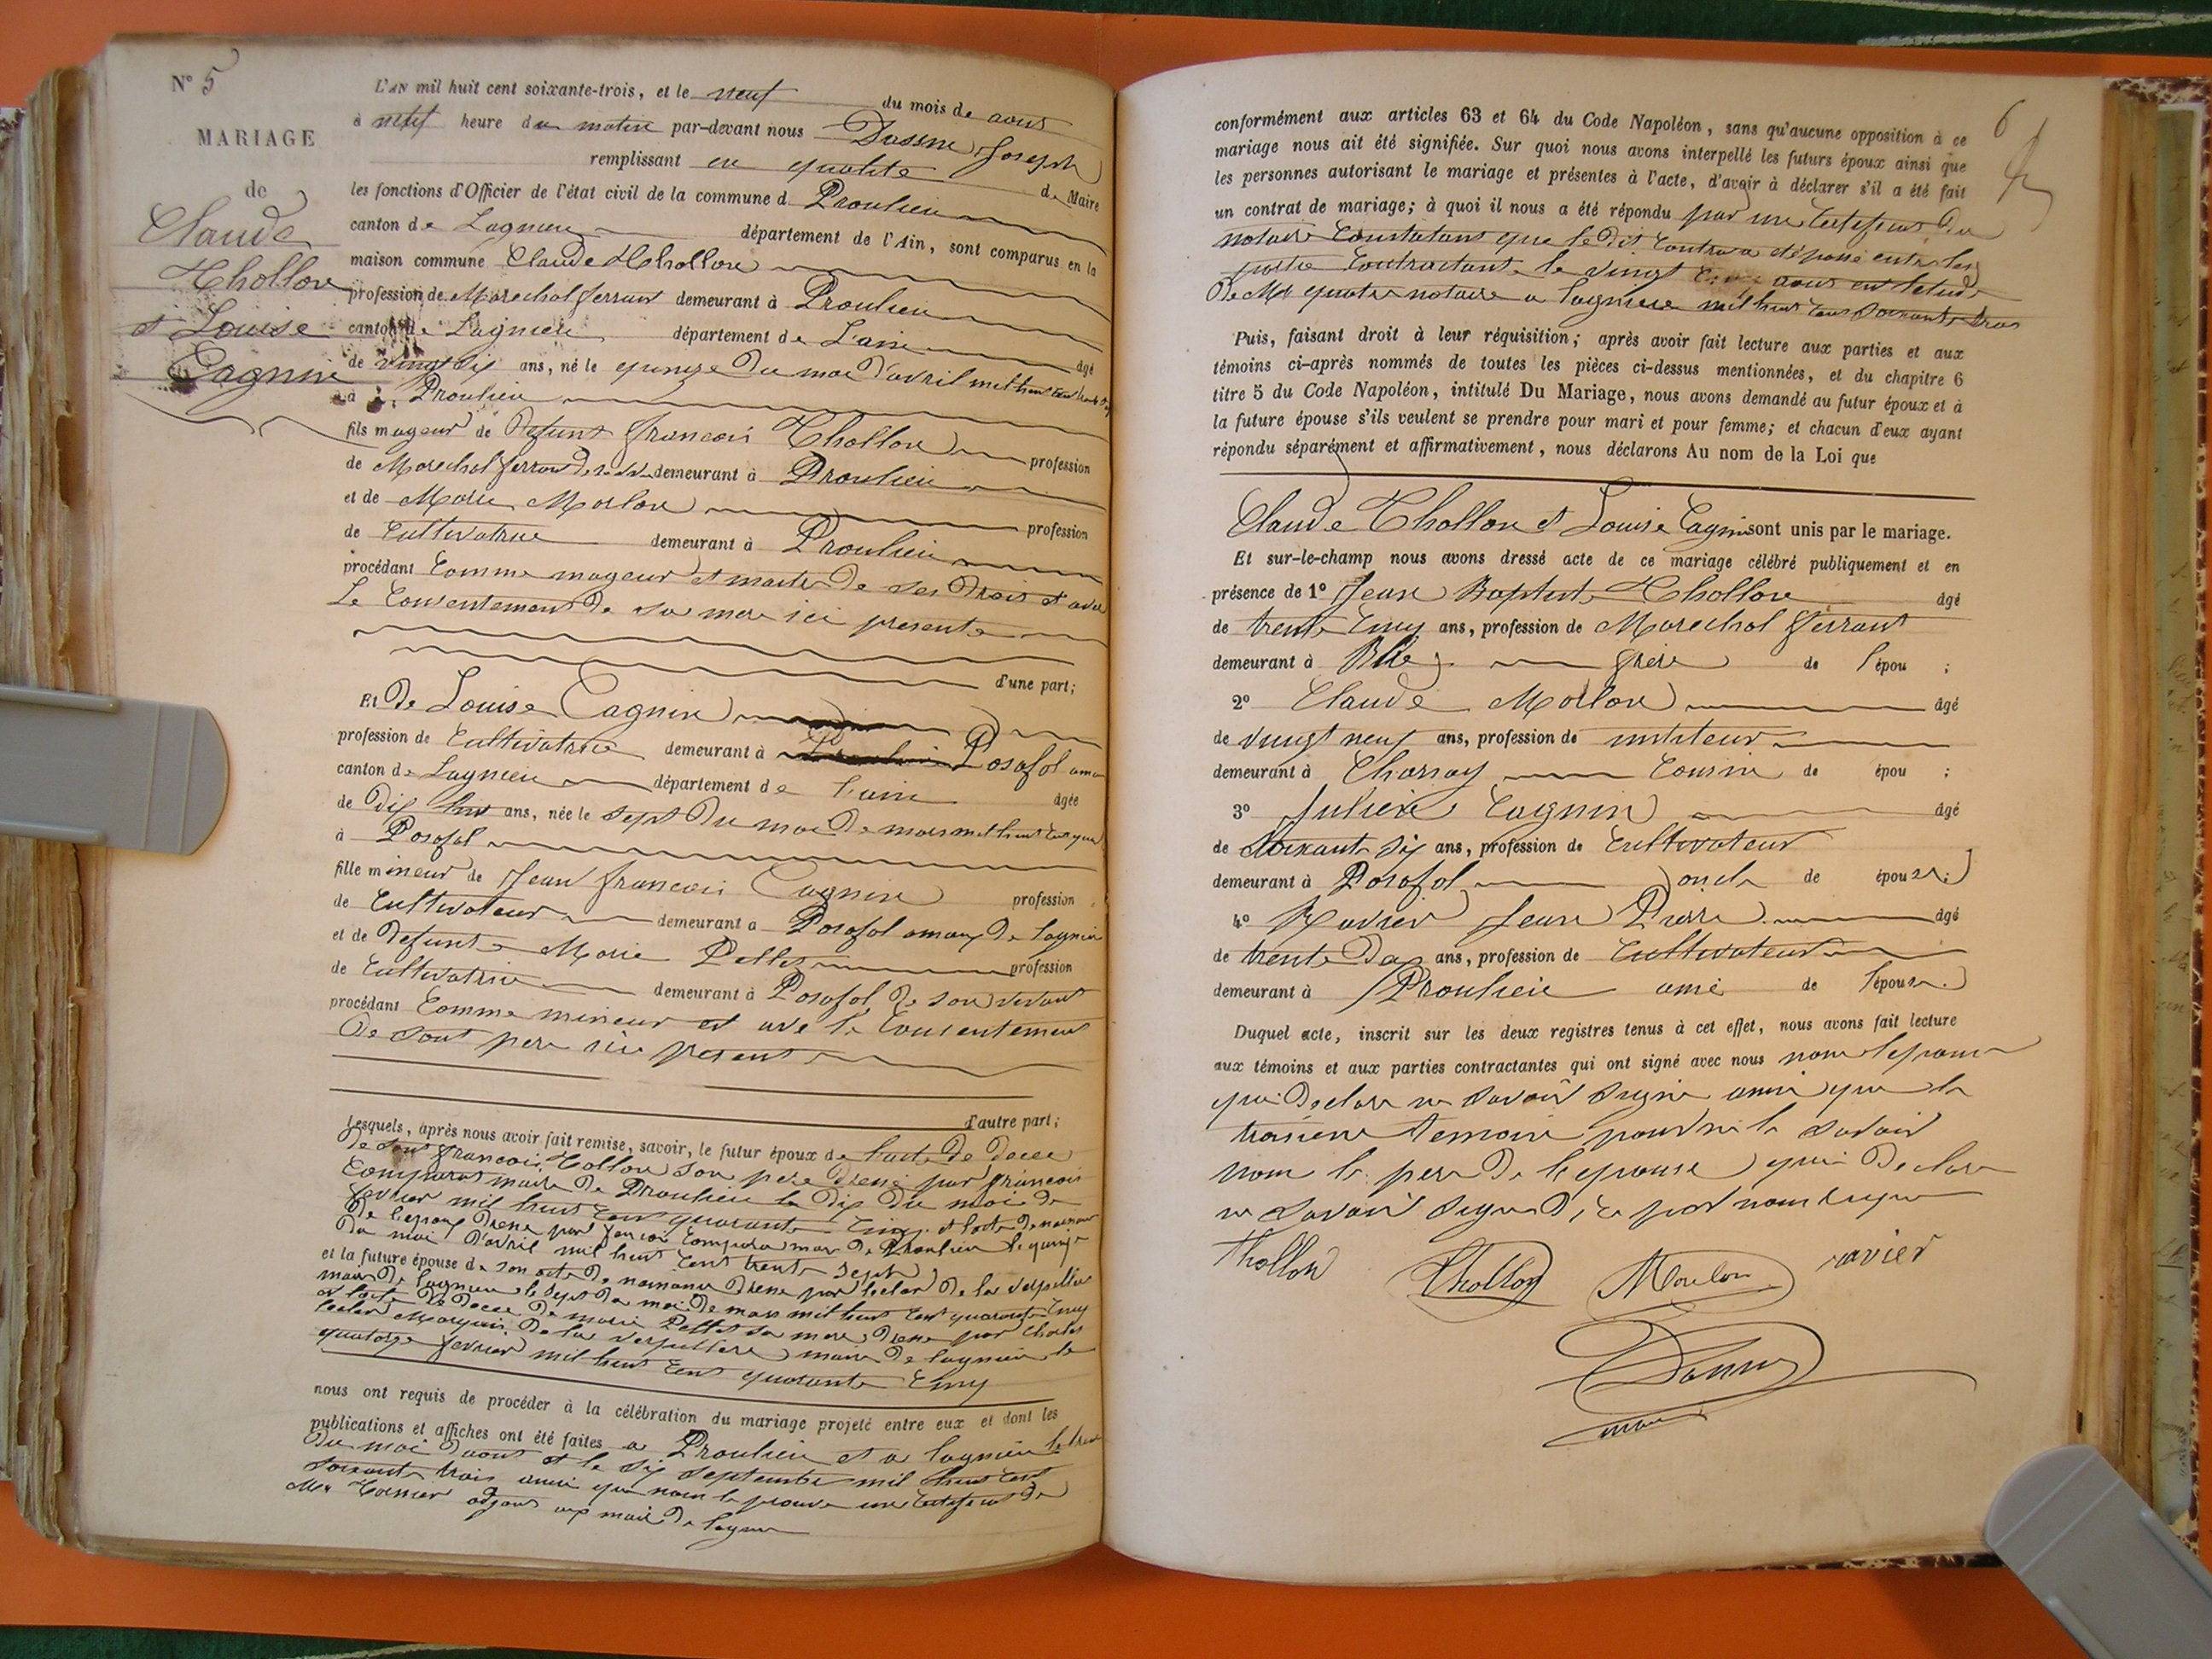 N° 5
MARIAGE
de
Claude
Thollon
et Louise
Cagnin
L'AN mil huit cent soixante-trois, et le neuf du mois de aout
à neuf heure du matin par-devant nous Joseph
remplissant en qualité de Maire
les fonctions d'Officier de l'état civil de la commune d Proulieu
canton de Lagnieu département de l'Ain, sont comparus en la
maison commune Claude Thollon
profession de Marechal ferrant demeurant à Proulieu
canton de Lagnieu département de L'ain
âgé de vingt six ans, né le quinze du moi d'avril mil huit cent
à Proulieu
fils mageur de defunt francois Thollon profession
de Marechal ferrant demeurant à Proulieu
et de Marie Morlon profession
de Cultivatrice demeurant à Proulieu
procédant Comme mageur et maitre de ses droit et avec
Le Consentement de sa mere ici presente
d'une part;
Et de Louise Cagnin
profession de Cultivatrice demeurant à Posafol
canton de Lagnieu département de l'ain âgée
de dix huit ans, née le sept du moi de mars mil huit cent
à Posafol
fille mineur de Jean francois Cagnin profession
de Cultivateur demeurant à Posafol amaux de lagnieu
et de defunte Marie Pellet profession
de Cultivatrice demeurant à Posafol de son vivant
procédant Comme mineur et ave le Consentement
de sont pere ici present
d'autre part;
Lesquels, après nous avoir fait remise, savoir, le futur époux de l'acte de dece
de sont francois Tollon son pere par francois
maire de Proulieu le dix du moi de
fevrier mil huit cent quarante cinq et lacte de
de lepoux par maire de Proulieu le quinze
du moi d'avril mil huit cent trente sept
et la future épouse de son acte de naisance par leclar de la Verpillier
maire de lagnieu le sept du moi de mars mil huit cent quarante cinq
et lacte de dece de marie Pellet sa mere par Charles
Marquis de la Verpilliere maire de lagnieu le
quatorze fevrier mil huit cent quarante cinq
nous ont requis de procéder à la célébration du mariage projeté entre eux et dont les
publications et affiches ont été faites a Proulieu et a lagnieu le
du moi daout et le six septembre mil huit cent
soixante trois ainsi que nous le prouve un certificat de
Mr adjoint aux maire de lagnieu
6
conformément aux articles 63 et 64 du Code Napoléon, sans qu'aucune opposition à ce
mariage nous ait été signifiée. Sur quoi nous avons interpellé les futurs époux ainsi que
les personnes autorisant le mariage et présentes à l'acte, d'avoir à déclarer s'il a été fait
un contrat de mariage; à quoi il nous a été répondu par un Certificat du
notaire Constatant que le dit Contra a été passé entre les
partie Contractante le vingt aout en letude
de Mr quatre notaire a lagnieu mil huit cent soixante trois
Puis, faisant droit à leur réquisition; après avoir fait lecture aux parties et aux
témoins ci-après nommés de toutes les pièces ci-dessus mentionnées, et du chapitre 6
titre 5 du Code Napoléon, intitulé Du Mariage, nous avons demandé au futur époux et à
la future épouse s'ils veulent se prendre pour mari et pour femme; et chacun d'eux ayant
répondu séparément et affirmativement, nous déclarons Au nom de la Loi que
Claude Thollon et Louise Cagnin sont unis par le mariage.
Et sur-le-champ nous avons dressé acte de ce mariage célébré publiquement et en
présence de 1° Jean Baptiste Thollon âgé
de trente Cinq ans, profession de Marechal ferrant
demeurant à frere de l'épou ;
2° Claude Morlon âgé
de vingt neuf ans, profession de institeur
demeurant à Charnay Cousin de épou ;
3° Julien Cagnin âgé
de soixante six ans, profession de Cultivateur
demeurant à Posafol oncle de épouse ;
4° Ravier Jean Pierre âgé
de trente ans, profession de Cultivateur
demeurant à Proulieu ami de l'épouse.
Duquel acte, inscrit sur les deux registres tenus à cet effet, nous avons fait lecture
aux témoins et aux parties contractantes qui ont signé avec nous non lepouse
qui declare ne savoir signe ainsi que le
troisiene temoin pour ne le savoir
non le pere de lepouse qui declare
ne savoir signe
thollon Thollon Morlon ravier
maire